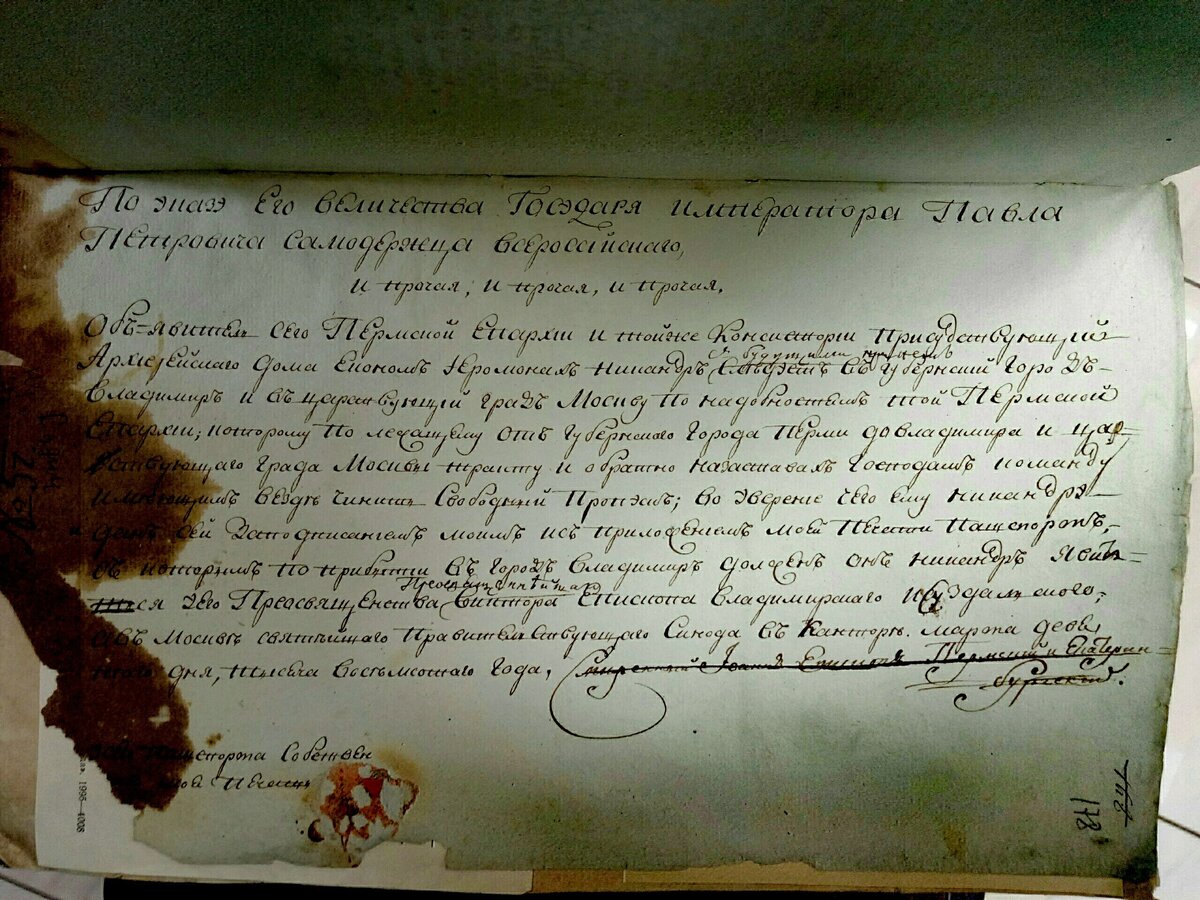 По указу Его величества Государя императора Павла
Петровича самодержца всероссийскаго,
и прочая, и прочая, и прочая.
Объ=явитель сего Пермской Епархии и тойже Консистории Присудствующий
Архиерейского дома Економъ Иеромонахъ Никандръ Следуетъ въ Губернский Городъ
съ будущими при немъ
Владимиръ и въ царствующий градъ Москву по надобностямъ той Пермской
Епархии; которому по лежащему отъ Губернского Города Перми до Владимира и цар=
ствующаго града Москвы тракту и обратно на заставахъ Господамъ команду
имеющимъ вездѣ чинить Свободный Пропускъ; во уверение чего ему Никандру
данъ сей за подписаниемъ моимъ и съ приложениемъ моей Печати Пашепортъ,
съ которымъ по прибытии въ Городъ Владимиръ долженъ онъ Никандръ явить
ся у его Преосвященства Виктора Епископа Владимирскаго и Суздальского,
а въ Москвѣ святѣйшаго Правительствующаго Синода въ Канторѣ. марта девя
таго дня, тысяча восемсотаго года,
Смиренный Иоаннъ Епископъ Пермский и Екатерин=
бургский.
пашепорта Собствен
моей Печати
№ 57
178
1995—4008